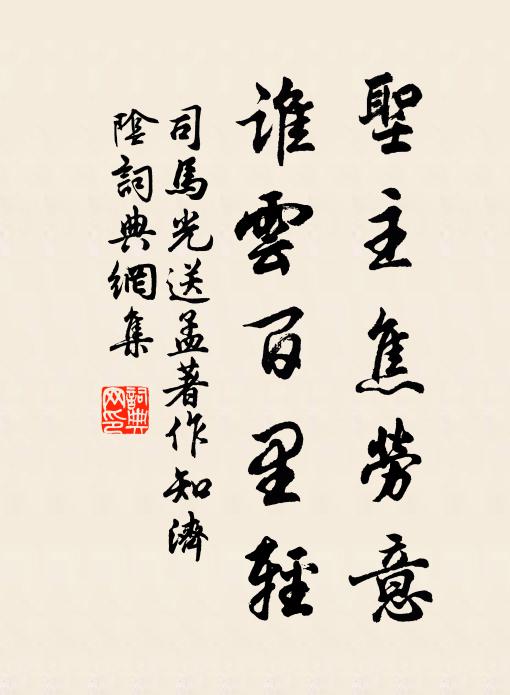 聖主焦勞意
誰雲百里輕
司馬光送孟著作知濟
陰詞典網集
詞典網印